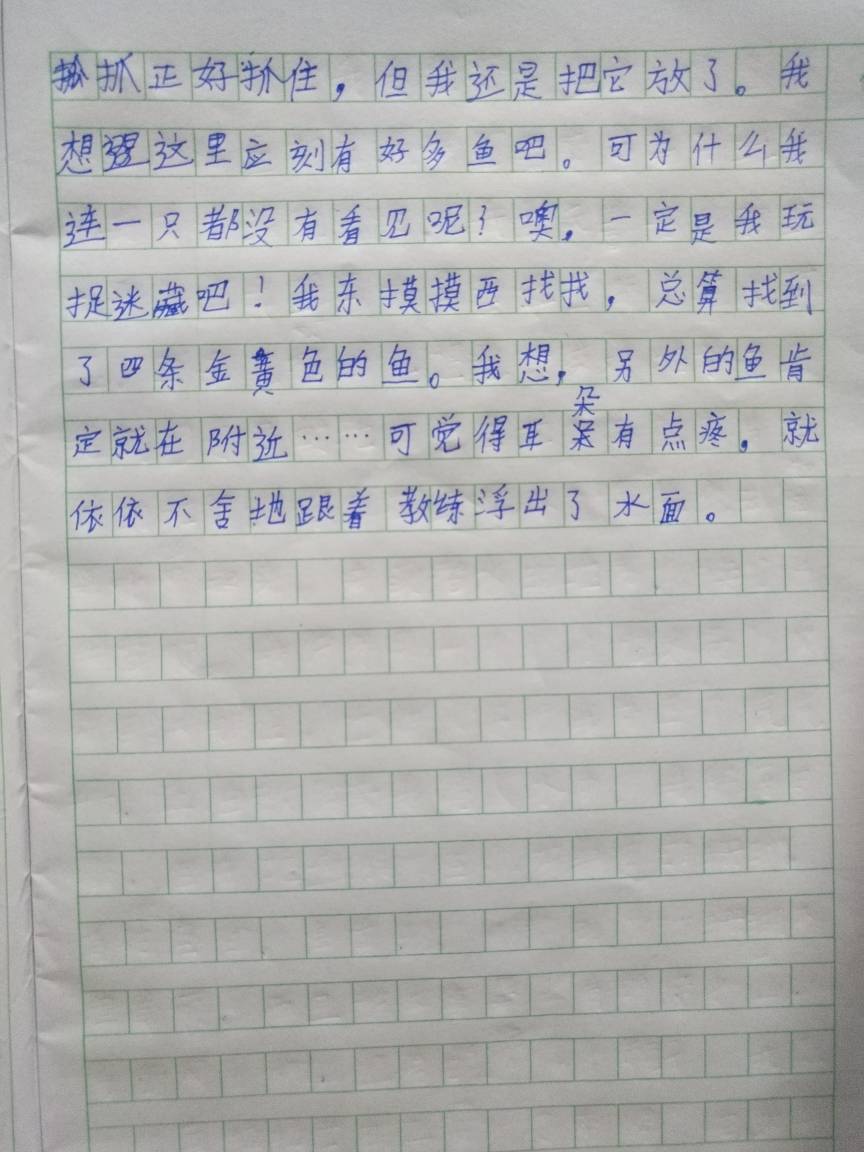 抓正好抓住，但我还是把它放了。我
想这里应刻有好多鱼吧。可为什么我
连一只都没有看见呢？噢，一定是我玩
捉迷藏吧！我东摸摸西找找，总算找到
了四条金黄色的鱼。我想，另外的鱼肯
定就在附近……可觉得耳朵有点疼，就
依依不舍地跟着教练浮出了水面。